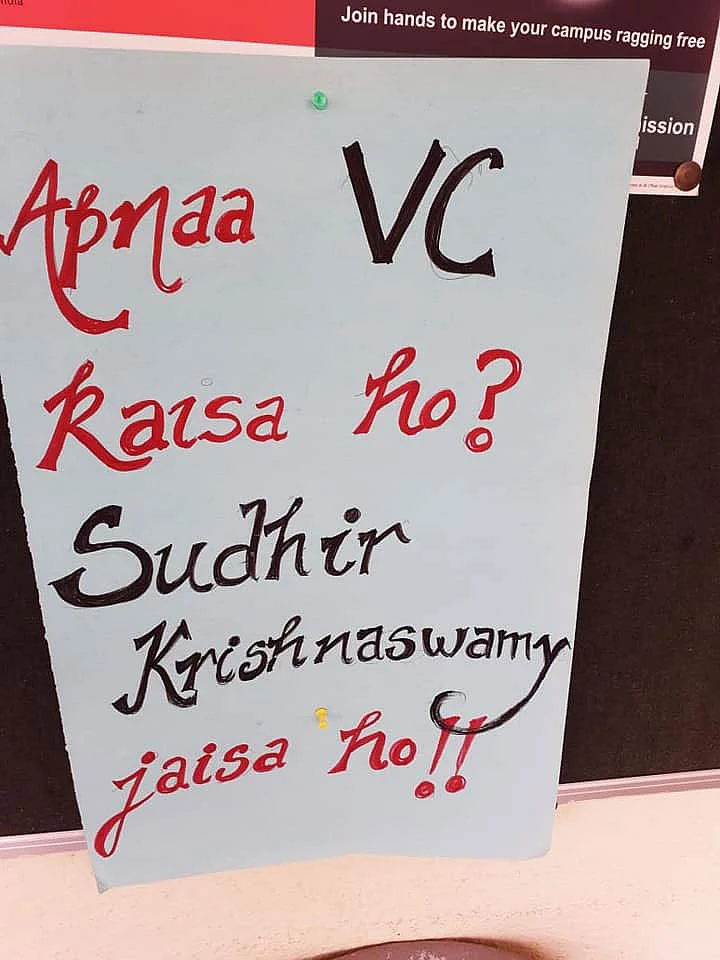 ndia
Join hands to make your campus ragging free
ission
Apnaa VC
kaisa ho?
Sudhir
Krishnaswamy
jaisa ho!!